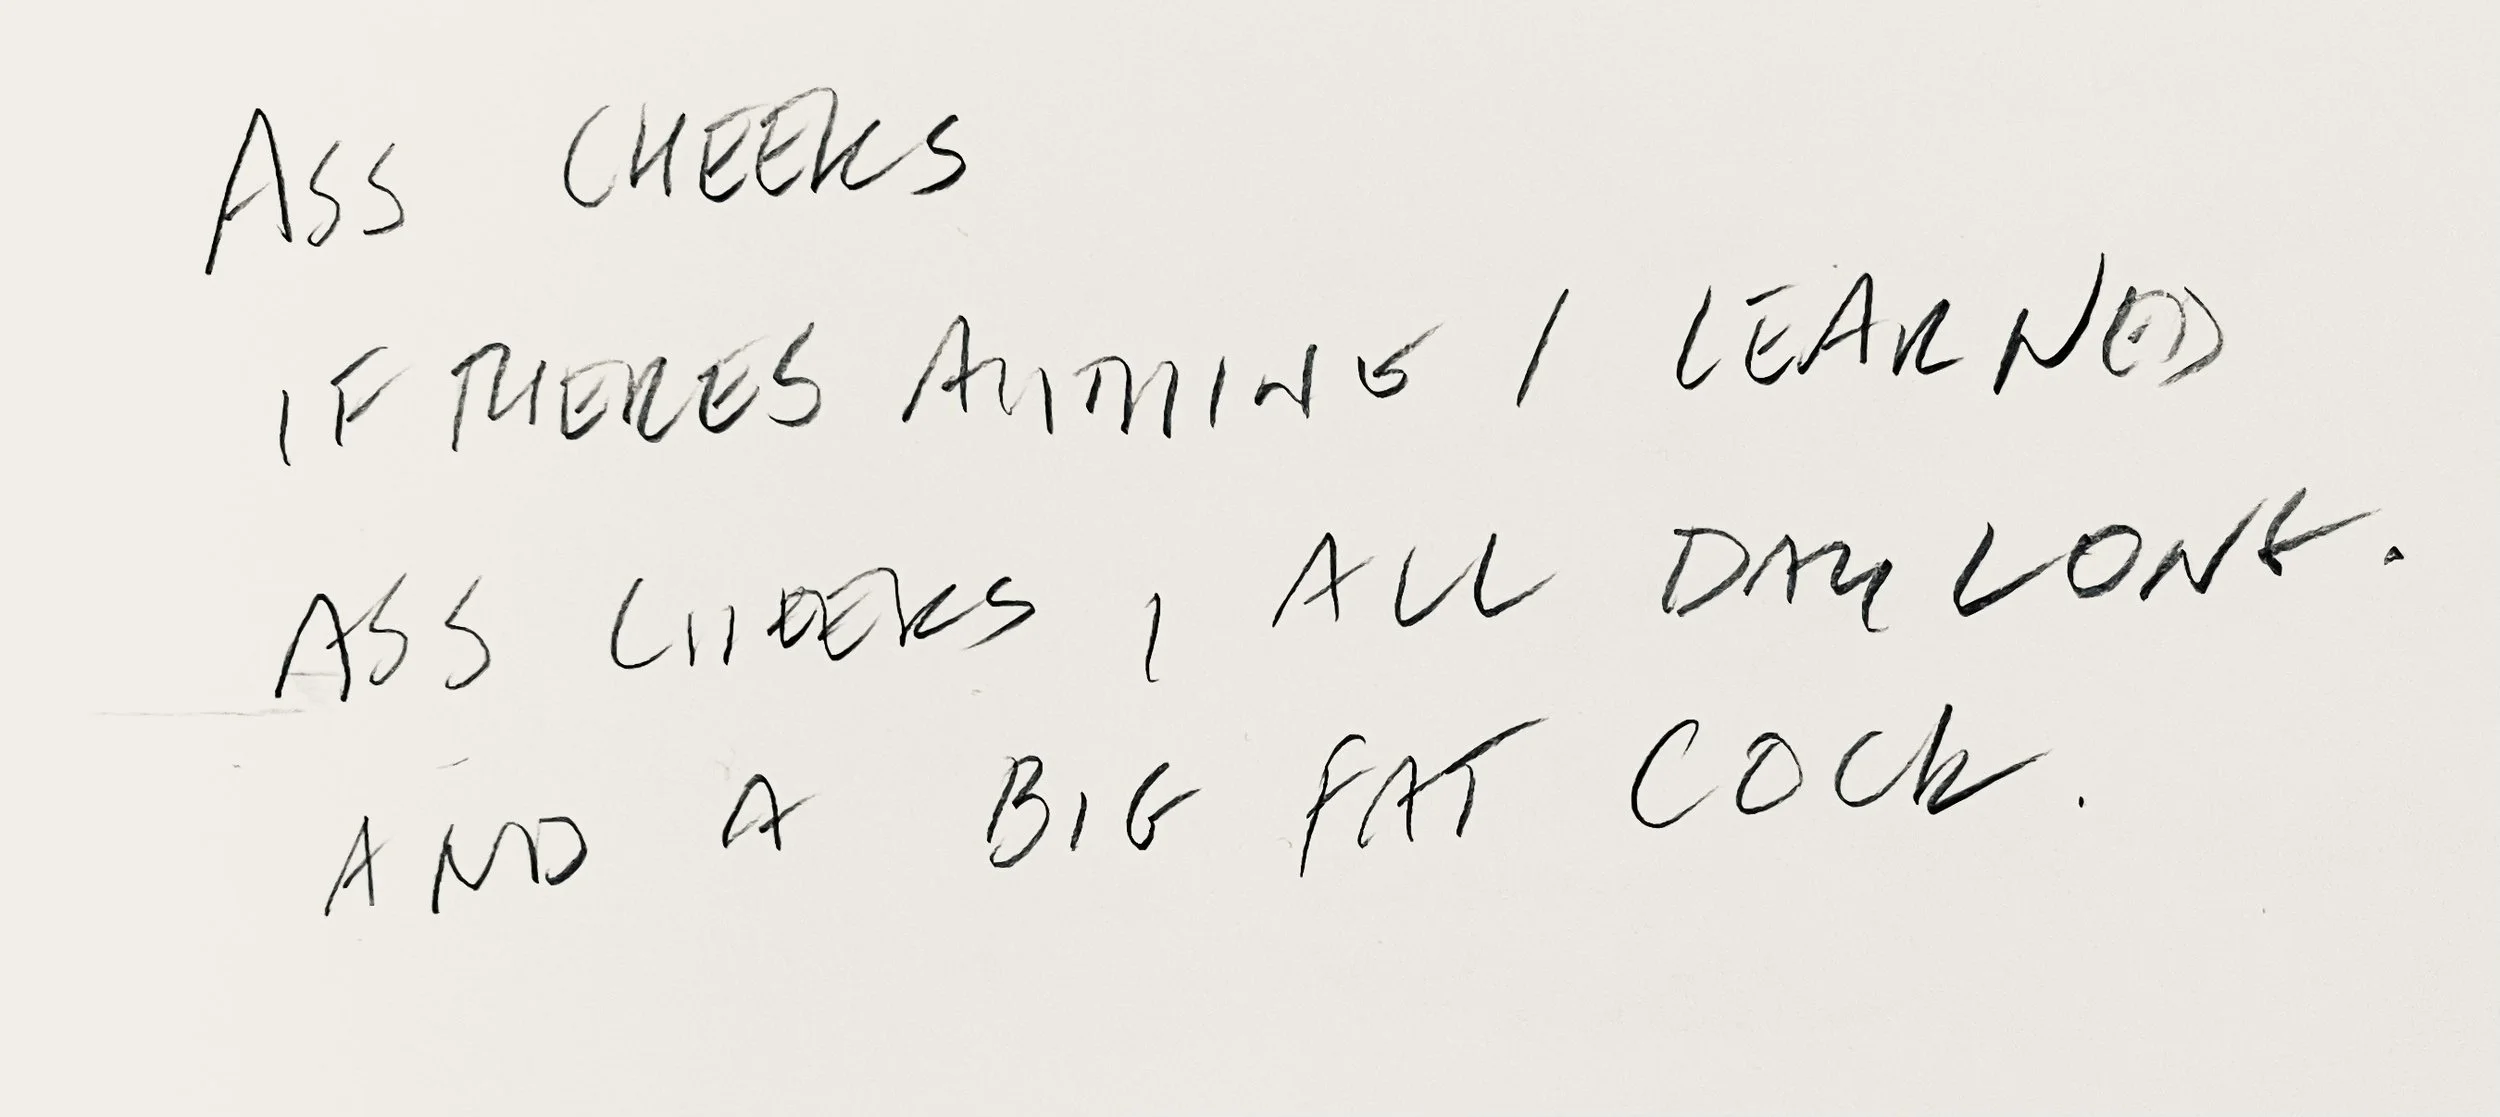 ASS CHEEKS
IF THERES ANYTHING I LEARNED
ASS CHEEKS, ALL DAY LONG.
AND A BIG FAT COCK.